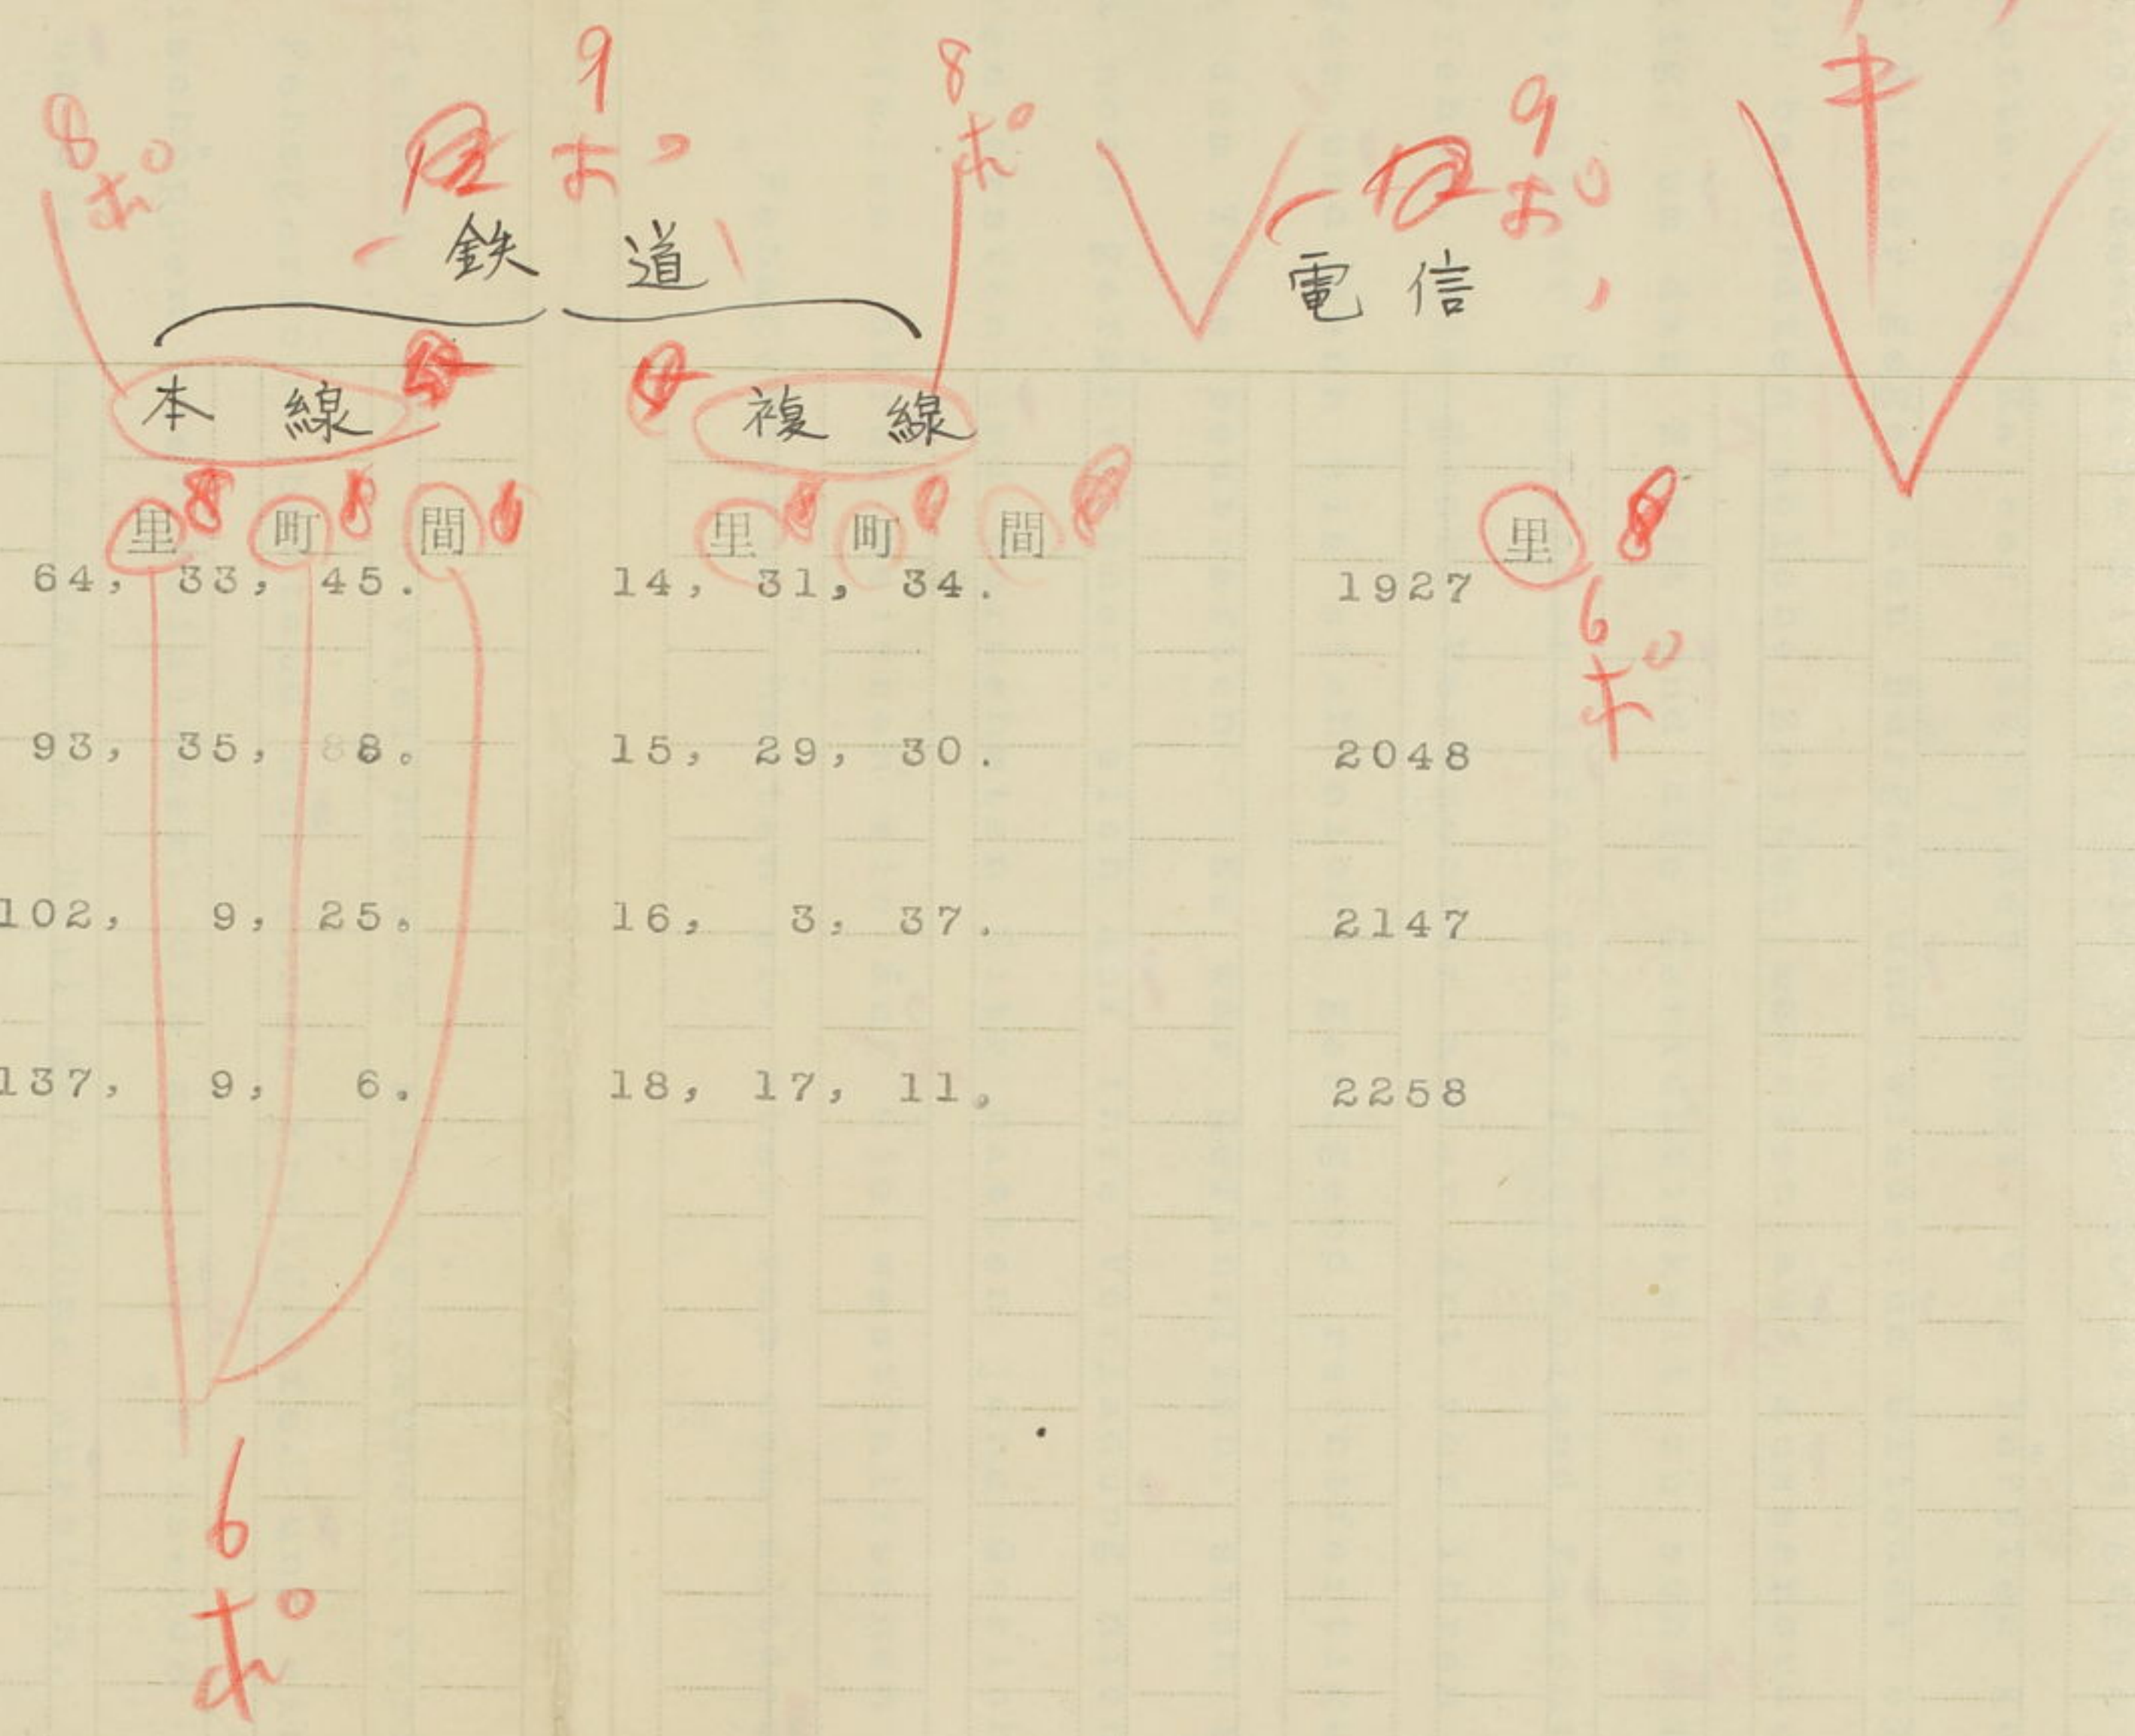 8 9 8 9
ポ ポ ポ ポ
鉄道 電信
本線 複線
里 町 間 里 町 間 里 8
64, 33, 45. 14, 31, 34. 1927
6
ポ
93, 35, 8. 15, 29, 30. 2048
102, 9, 25. 16, 3, 37. 2147
137, 9, 6. 18, 17, 11. 2258
6
ポ